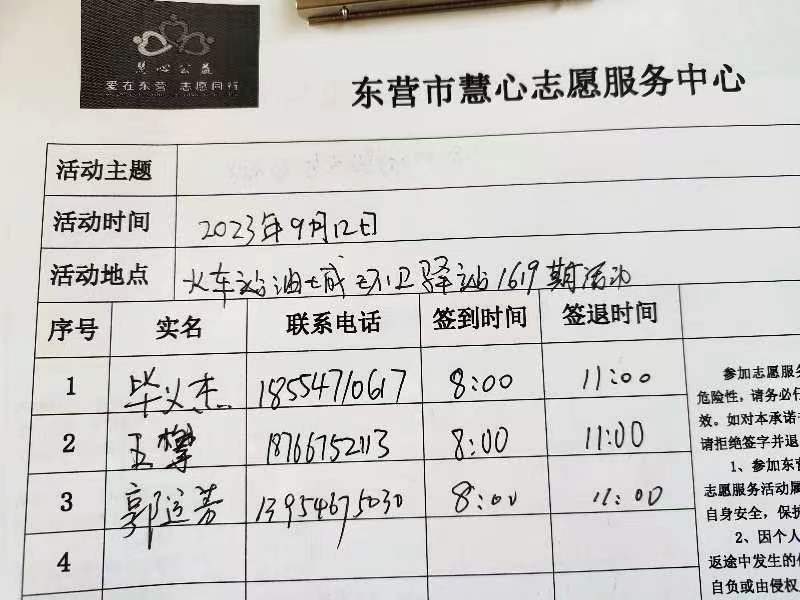 慧心公益
爱在东营 志愿同行
东营市慧心志愿服务中心
活动主题
活动时间 2023年9月12日
活动地点 火车站油城环卫驿站1619期活动
序号 实名 联系电话 签到时间 签退时间
1 毕义杰 18554710617 8:00 11:00
2 王攀 18766752113 8:00 11:00
3 郭运芳 13954675030 8:00 11:00
4
参加志愿服务
危险性，请务必仔
效。如对本承诺
请拒绝签字并退
1、参加东营
志愿服务活动属
自身安全，保护
2、因个人
返途中发生的
自负或由侵权